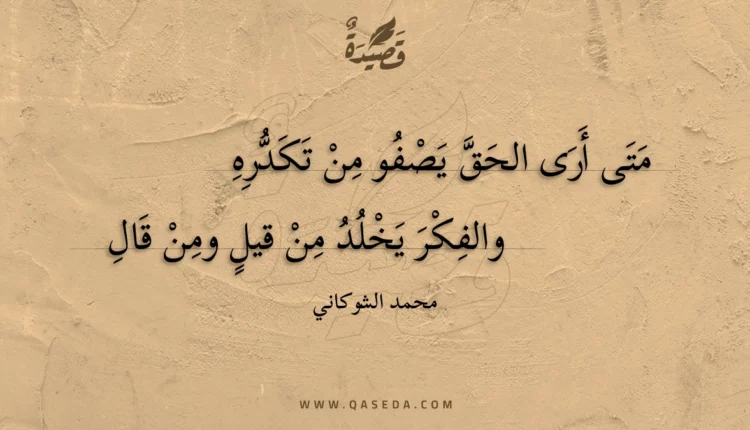 قَصِيْدَةٌ
مَتَى أَرَى الحَقَّ يَصْفُو مِنْ تَكَدُّرِهِ
والفِكْرَ يَخْلُدُ مِنْ قيلٍ ومِنْ قَالِ
محمد الشوكاني
WWW.QASEDA.COM